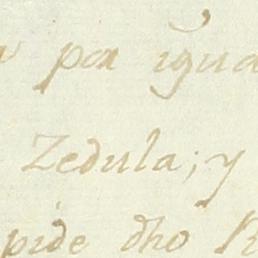 por igua
Zedula; y
pide dho R